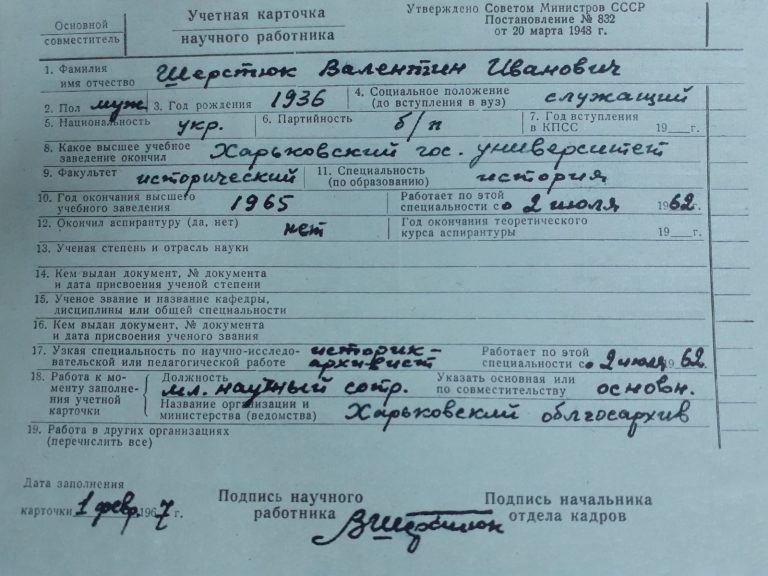 Основной
совместитель
Учетная карточка
научного работника
Утверждено Советом Министров СССР
Постановление № 832
от 20 марта 1948 г.
1. Фамилия
имя отчество Шерстюк Валентин Иванович
2. Пол муж 3. Год рождения 1936 4. Социальное положение
(до вступления в вуз) служащий
5. Национальность укр. 6. Партийность б/п 7. Год вступления
в КПСС 19__г.
8. Какое высшее учебное
заведение окончил Харьковский гос. университет
9. Факультет исторический 11. Специальность
(по образованию) история
10. Год окончания высшего
учебного заведения 1965 Работает по этой
специальности с 2 июля 1962 г.
12. Окончил аспирантуру (да, нет) нет Год окончания теоретического
курса аспирантуры 19__г.
13. Ученая степень и отрасль науки
14. Кем выдан документ, № документа
и дата присвоения ученой степени
15. Ученое звание и название кафедры,
дисциплины или общей специальности
16. Кем выдан документ, № документа
и дата присвоения ученого звания
17. Узкая специальность по научно-исследо-
вательской или педагогической работе историк-
архивист Работает по этой
специальности с 2 июля 1962
18. Работа к мо-
менту заполне-
ния учетной
карточки
Должность мл. научный сотр. Указать основная или
по совместительству основн.
Название организации и
министерства (ведомства) Харьковский облгосархив
19. Работа в других организациях
(перечислить все)
Дата заполнения
карточки 1 февр. 1967 г.
Подпись научного
работника ВШерстюк
Подпись начальника
отдела кадров